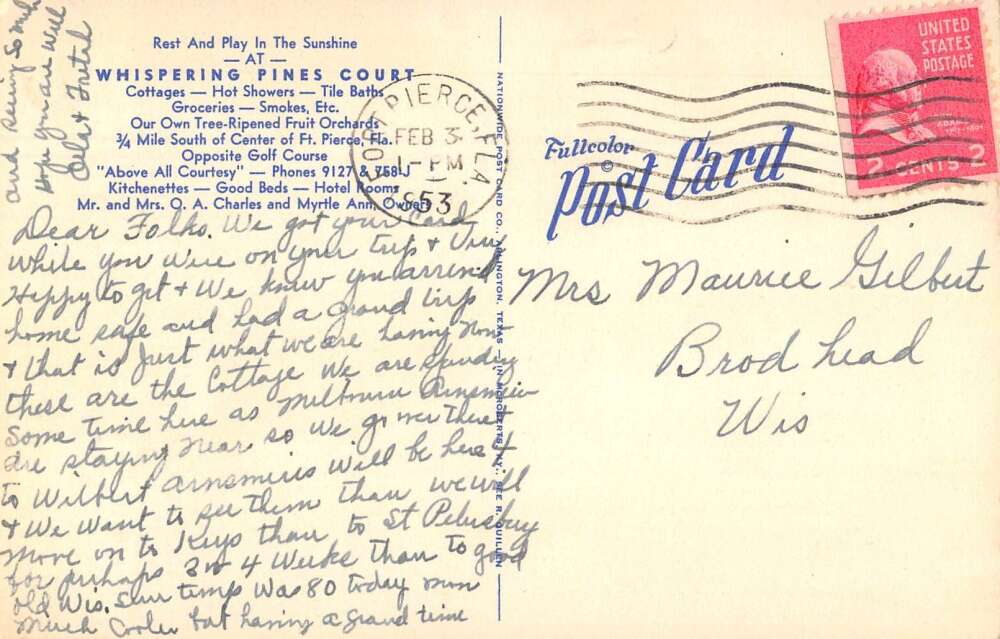 Rest And Play In The Sunshine
— AT —
WHISPERING PINES COURT
Cottages — Hot Showers — Tile Baths
Groceries — Smokes, Etc.
Our Own Tree-Ripened Fruit Orchards
¾ Mile South of Center of Ft. Pierce, Fla.
Opposite Golf Course
"Above All Courtesy" — Phones 9127 & 758-J
Kitchenettes — Good Beds — Hotel Rooms
Mr. and Mrs. O. A. Charles and Myrtle Ann, Owners
Dear Folks. We got your Card
while you were on your trip & Very
Happy to get & We know you arrived
home safe and had a grand trip
& that is Just what we are having now
these are the Cottage We are Spending
Some time here as Melbourne
are staying near so we go over there &
to Wilbert will be here &
& We want to see them than we will
Move on to Keys than to St Petersburg
for perhaps 3 or 4 Weeks than to good
old Wis. Sun temp Was 80 today
Much Cooler but having a grand time
and seeing So much
Hope you are Well
FORT PIERCE, FLA.
FEB 3
1-PM
1953
NATIONWIDE POST CARD CO., ARLINGTON, TEXAS — IN McROBERTS, KY., SEE R. QUILLEN
Fullcolor
©
Post Card
UNITED
STATES
POSTAGE
2 CENTS 2
Mrs Maurice Gilbert
Brodhead
Wis